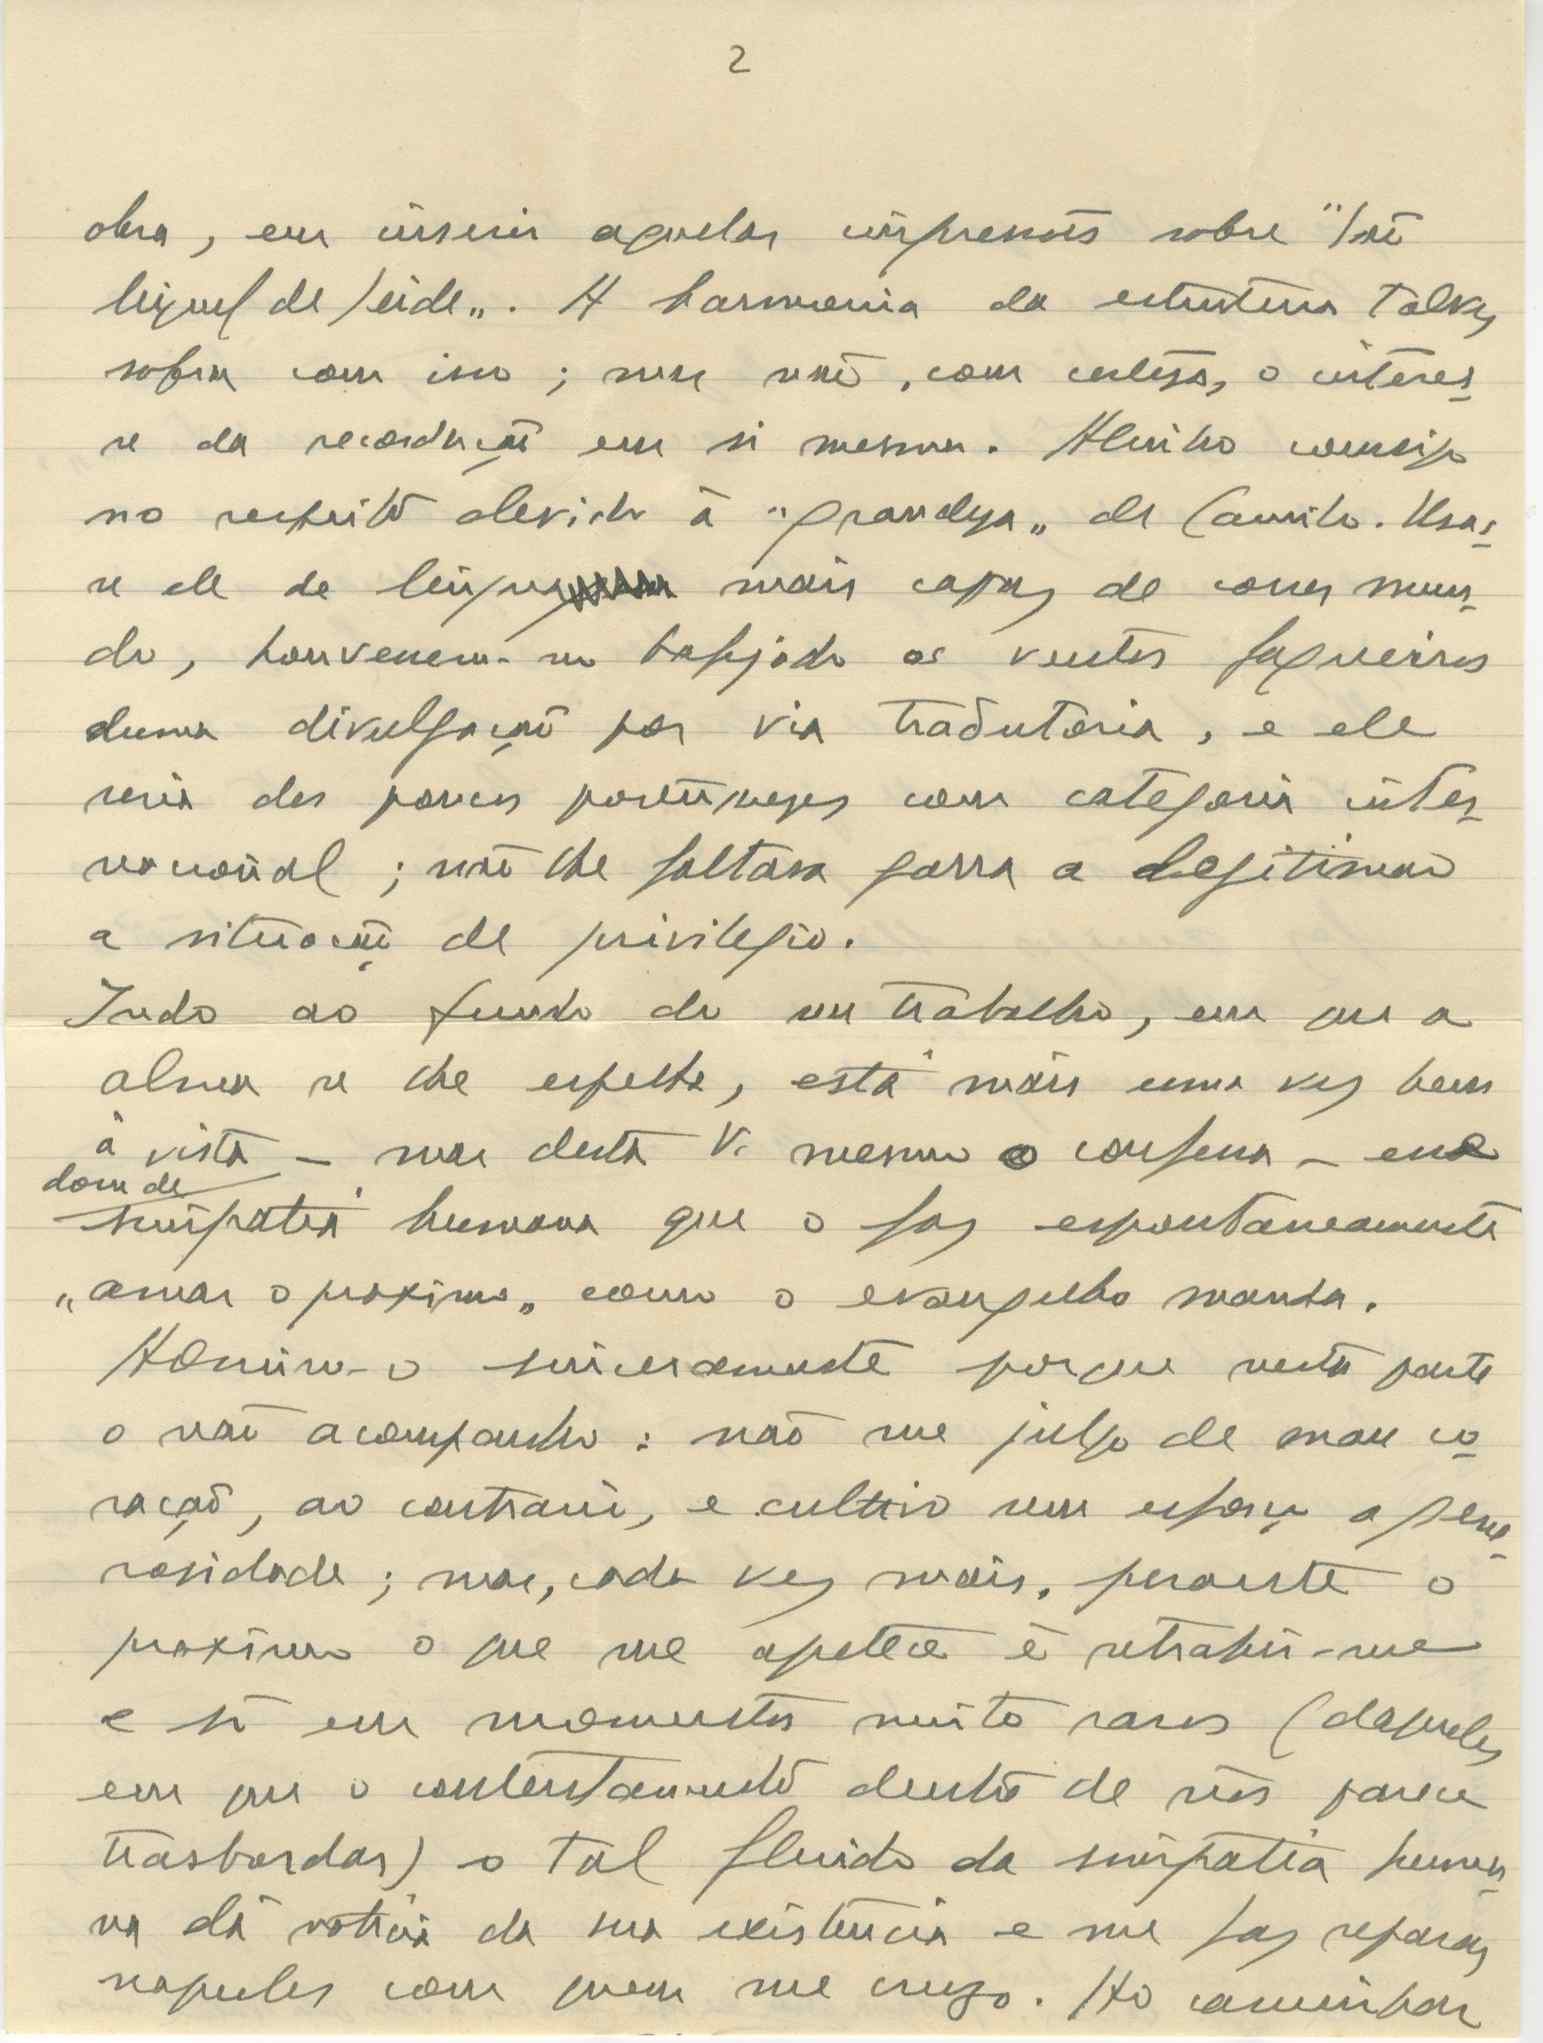 2
obra, em inserir aquelas impressões sobre "São
Miguel de Seide". A harmonia da estrutura talvez
sofra com isso; mas não, com certeza, o interes-
se da recordação em si mesma. Alinho consigo
no respeito devido à "grandeza" de Camilo. Usas-
se ele de língua mais capaz de correr mun-
do, houvessem-no bafejado os ventos fagueiros
duma divulgação por via tradutória, e ele
seria dos poucos portugueses com categoria inter-
nacional; não lhe faltava garra a legitimar
a situação de privilegio.
Indo ao fundo do seu trabalho, em que a
alma se lhe espelha, está mais uma vez bem
à vista – mas desta V. mesmo o confessa – esse
dom de
simpatia humana que o faz espontaneamente
"amar o proximo" como o evangelho manda.
Admiro-o sinceramente porque nesta parte
o não acompanho: não me julgo de mau co-
ração, ao contrario, e cultivo sem esforço a gene-
rosidade; mas, cada vez mais, perante o
proximo o que me apetece é retrahir-me
e só em momentos muito raros (daqueles
em que o contentamento dentro de nós parece
trasbordar) o tal fluido da simpatia huma-
na dá noticia da sua existencia e me faz reparar
naqueles com quem me cruzo. Ao caminhar